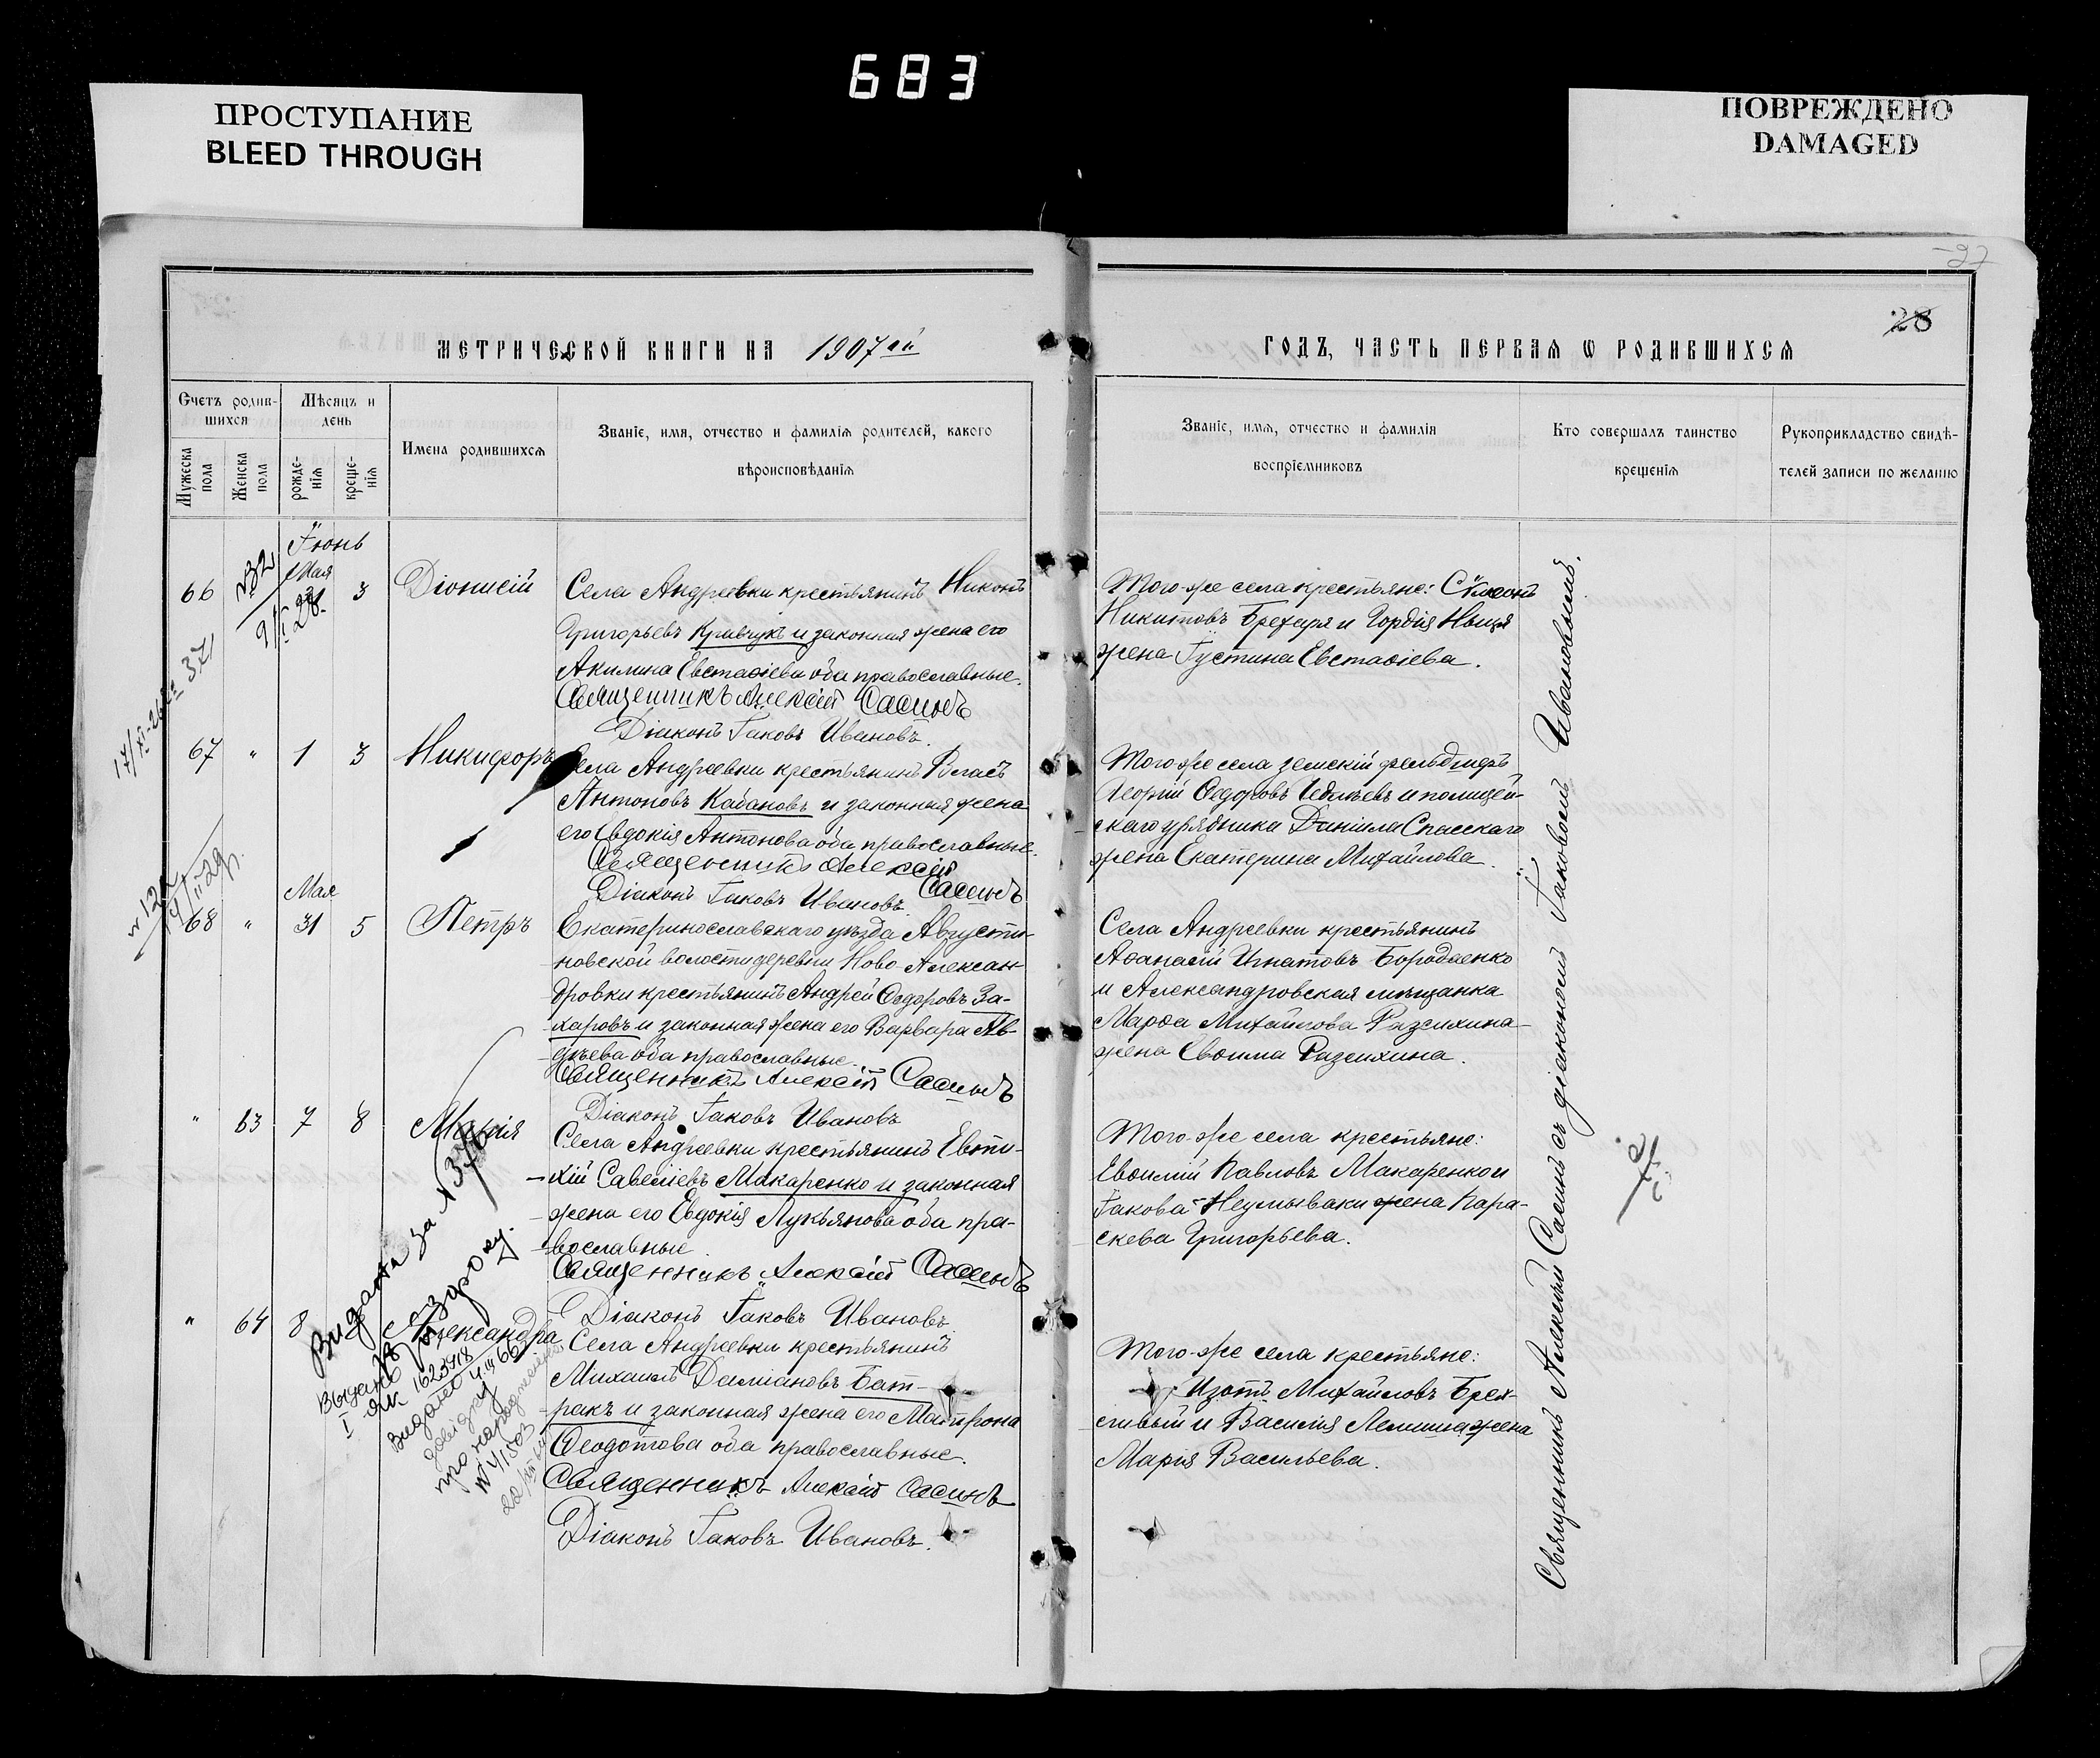 683
ПРОСТУПАНИЕ
BLEED THROUGH
ПОВРЕЖДЕНО
DAMAGED
27
28
МЕТРИЧЕСКОЙ КНИГИ НА 1907ый
ГОДЪ, ЧАСТЬ ПЕРВАЯ Ѡ РОДИВШИХСЯ
Счетъ родив-
шихся
Мѣсяцъ и
день
Мужеска
пола
Женска
пола
рожде-
нія
креще-
нія
Имена родившихся
Званіе, имя, отчество и фамилія родителей, какого
вѣроисповѣданія
Званіе, имя, отчество и фамилія
воспріемниковъ
Кто совершалъ таинство
крещенія
Рукоприкладство свидѣ-
телей записи по желанію
Іюнь
Мая
66 28 3 Діонисій
Села Андреевки крестьянинъ Никонъ
Григорьевъ Кравчукъ и законная жена его
Акилина Евстаѳіева оба православные.
Священникъ Алексій Сасинъ
Діаконъ Іаковъ Ивановъ.
Того-же села крестьяне: Сѵмеонъ
Никитовъ Брехаря и Гордія Ныця
жена Іустина Евстаѳіева.
67 " 1 3 Никифоръ
Села Андреевки крестьянинъ Власъ
Антоновъ Кабановъ и законная жена
его Евдокія Антонова оба православные.
Священникъ Алексій
Сасинъ
Діаконъ Іаковъ Ивановъ
Того же села земскій фельдшеръ
Георгій Ѳедоровъ и полицей-
скаго урядника Даніила Спасскаго
жена Екатерина Михайлова.
Мая
68 " 31 5 Петръ
Екатеринославскаго уѣзда Августи-
новской волости деревни Ново-Алексан-
дровки крестьянинъ Андрей Ѳедоровъ За-
харовъ и законная жена его Варвара Ав-
дѣева оба православные.
Священникъ Алексій Сасинъ
Діаконъ Іаковъ Ивановъ
Села Андреевки крестьянинъ
Аѳанасій Игнатовъ Бородаенко
и Александровская мѣщанка
Марѳа Михайлова Разсихина
жена Евѳима Разсихина.
" 63 7 8 Марія
Села Андреевки крестьянинъ Евти-
хій Савеліевъ Макаренко и законная
жена его Евдокія Лукьянова оба пра-
вославные.
Священникъ Алексій Сасинъ
Діаконъ Іаковъ Ивановъ
Того-же села крестьяне:
Евѳимій Павловъ Макаренко и
Іакова Неумываки жена Пара-
скева Григорьева.
" 64 8 Александра
Села Андреевки крестьянинъ
Михаилъ Даміановъ Бат-
ракъ и законная жена его Матрона
Ѳеодотова оба православные.
Священникъ Алексій Сасинъ
Діаконъ Іаковъ Ивановъ.
Того-же села крестьяне:
Изотъ Михайловъ Брех-
ливый и Василія Лемиша жена
Марія Васильева.
Священникъ Алексій Сасинъ съ діакономъ Іаковомъ Ивановымъ.
Видана за N 370